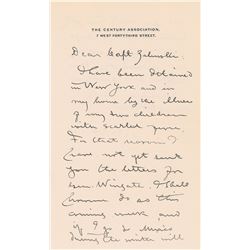 THE CENTURY ASSOCIATION,
7 WEST FORTY-THIRD STREET.
Dear Capt Zalinski:
I have been detained
in New York and in
my home by the illness
of my two children
with scarlet fever.
For that reason I
have not yet sent
you the letters for
Gen. Wingate. I shall
however do so this
coming week, and
if I go to Mexico
during the winter will